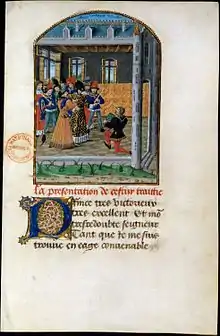 La presentation de cestuy traittie
Prince tres victorieux
tres excellent Et mon
tresredoubte seigneur
Tant que Je me suis
trouve en eage conuenable